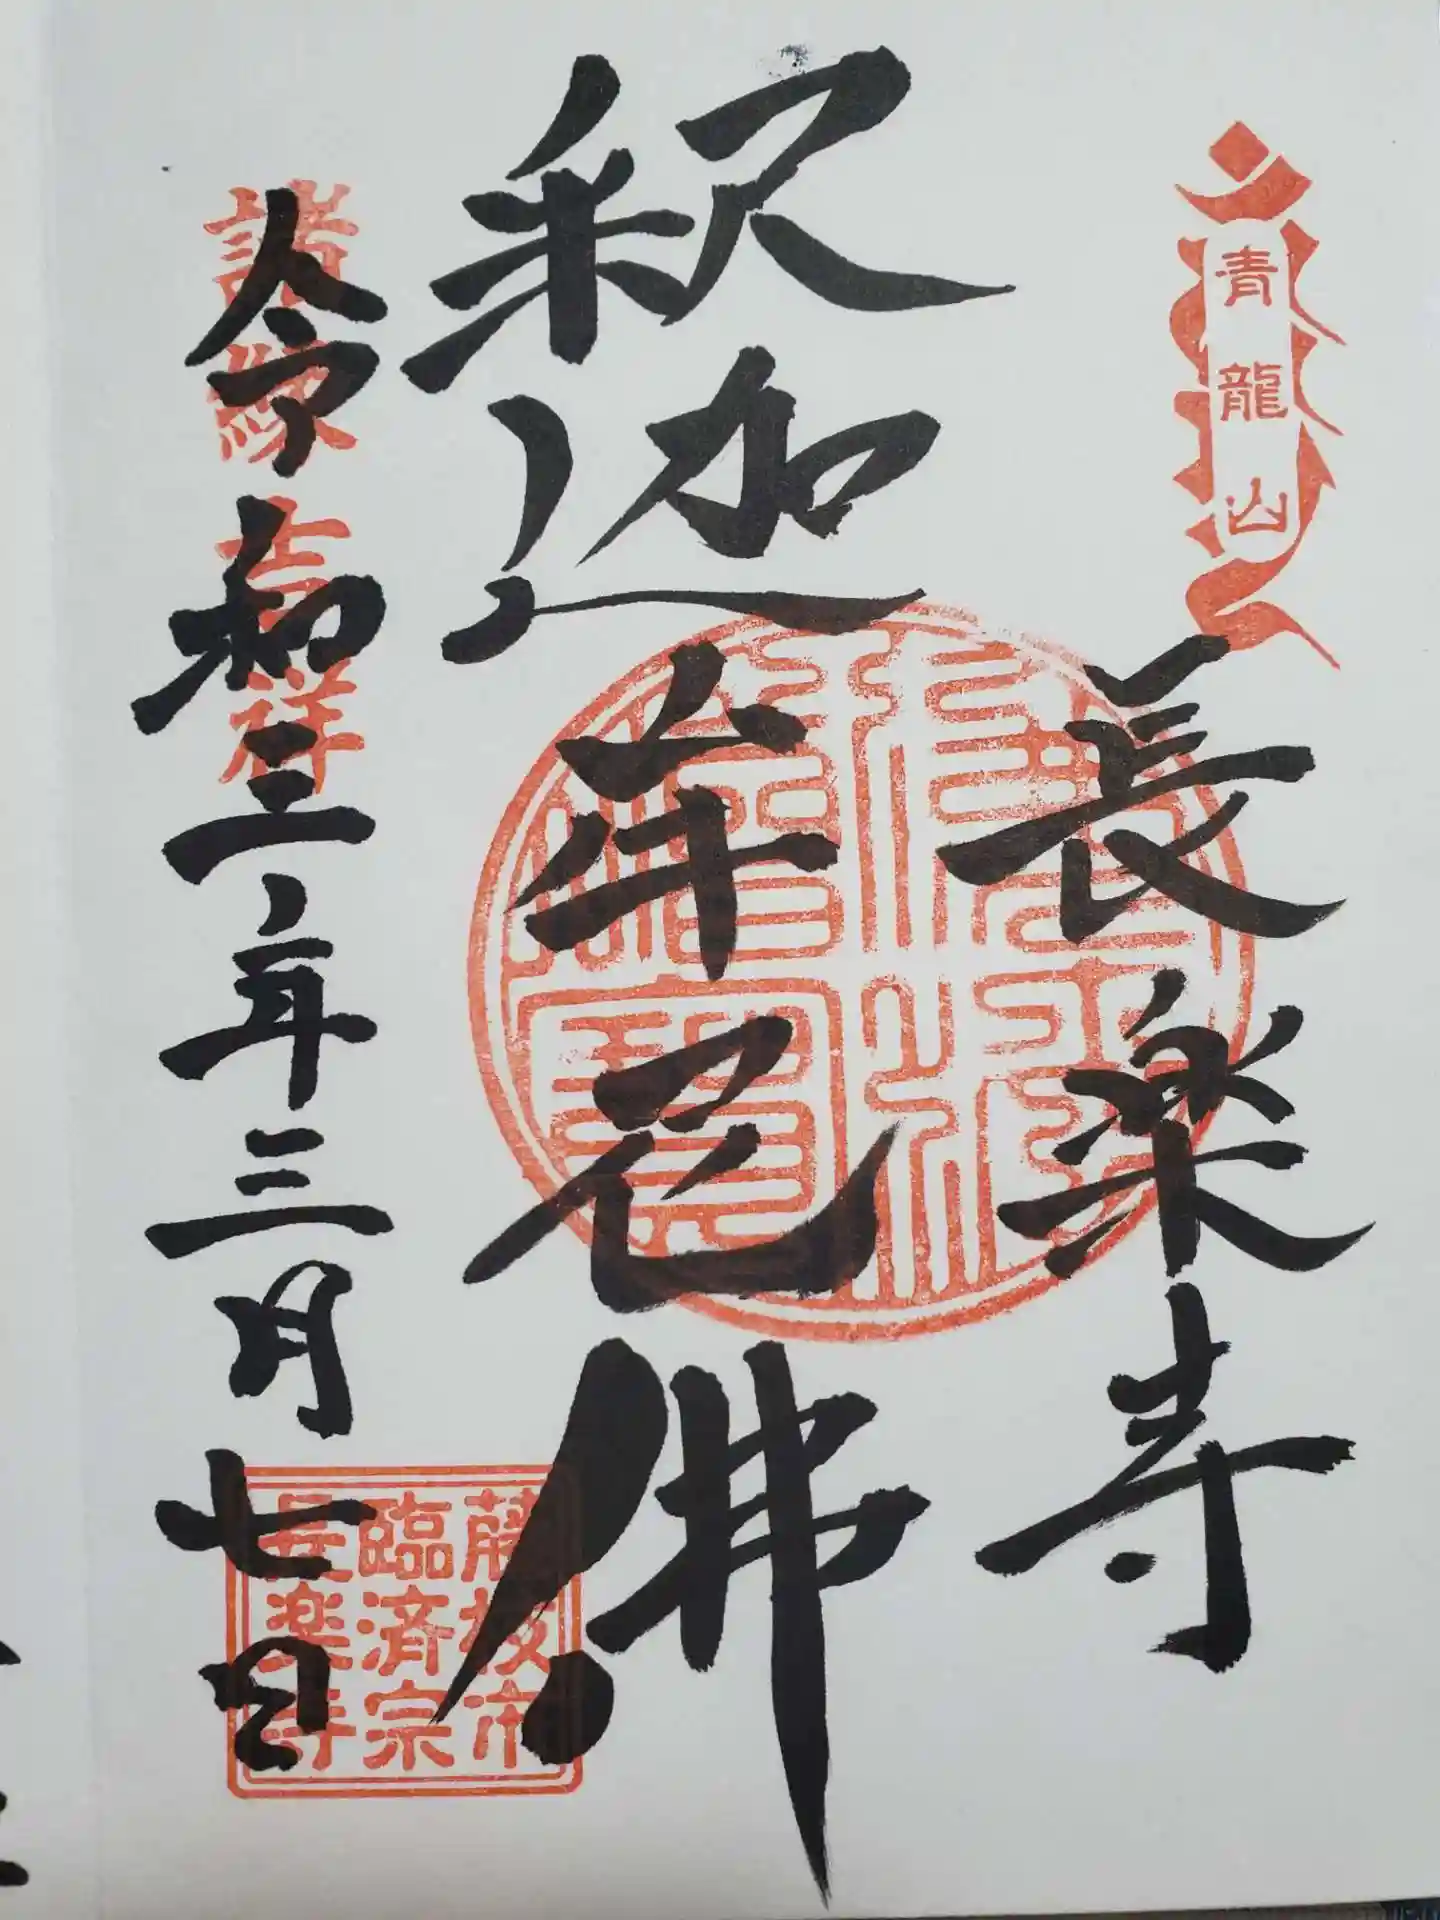 青龍山
長楽寺
釈迦牟尼佛
諸縁吉祥
令和三年三月七日
藤枝市
臨済宗
長楽寺